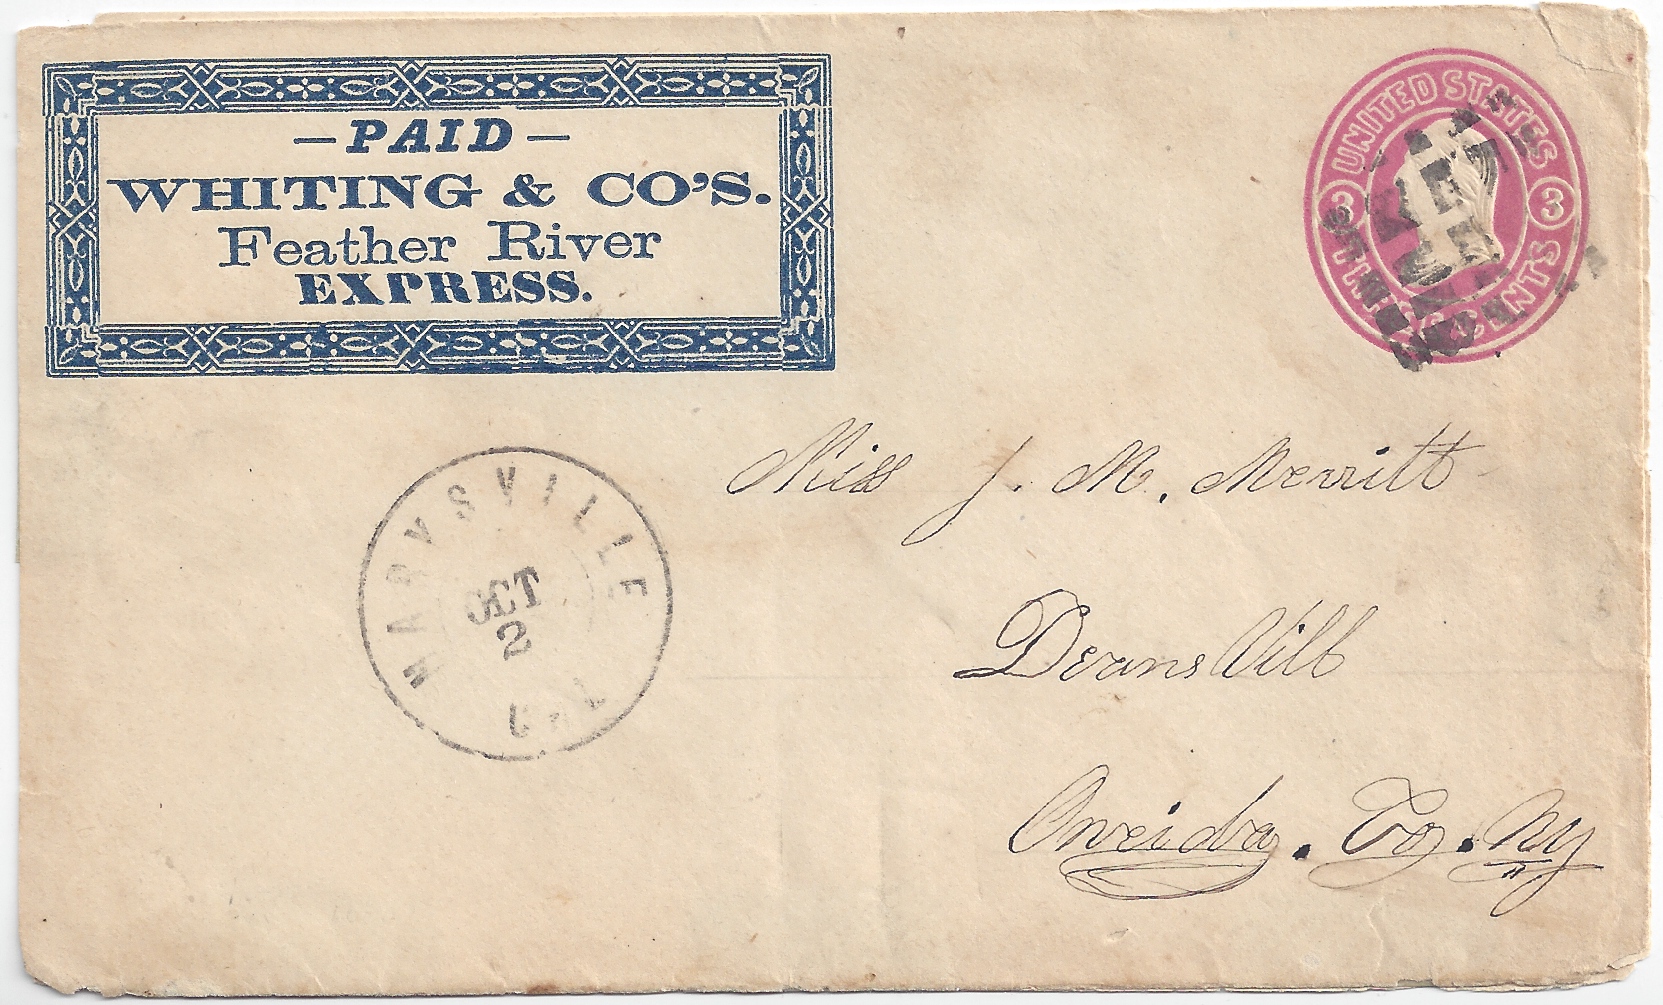 — PAID —
WHITING & CO'S.
Feather River
EXPRESS.
UNITED STATES
3 3
THREE CENTS
MARYSVILLE
OCT
2
Cal
Miss J. M. Merritt
Deans Vill
Oneida. Co. NY